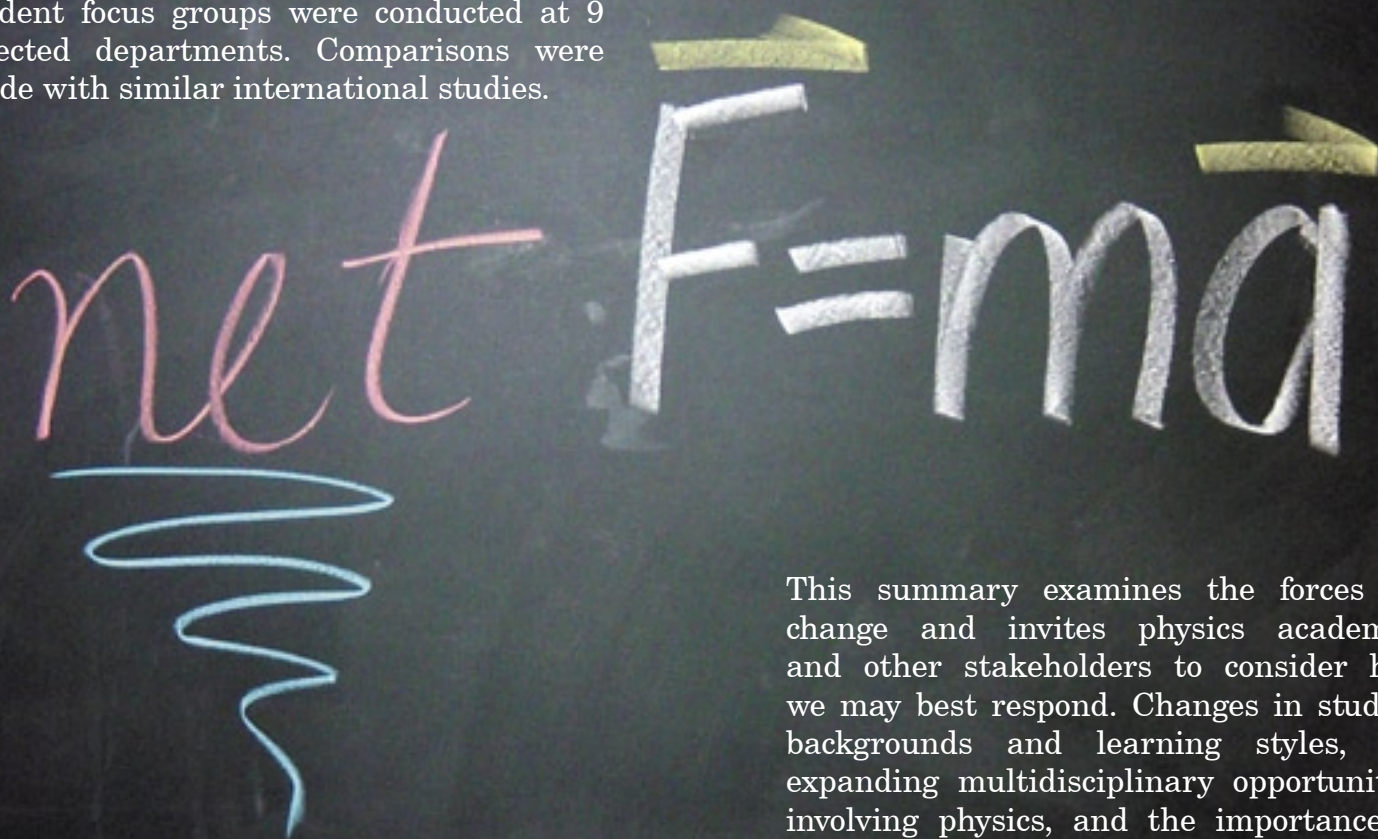 dent focus groups were conducted at 9
ected departments. Comparisons were
de with similar international studies.
net F=ma
This summary examines the forces
change and invites physics academ
and other stakeholders to consider h
we may best respond. Changes in stud
backgrounds and learning styles,
expanding multidisciplinary opportunit
involving physics, and the importance